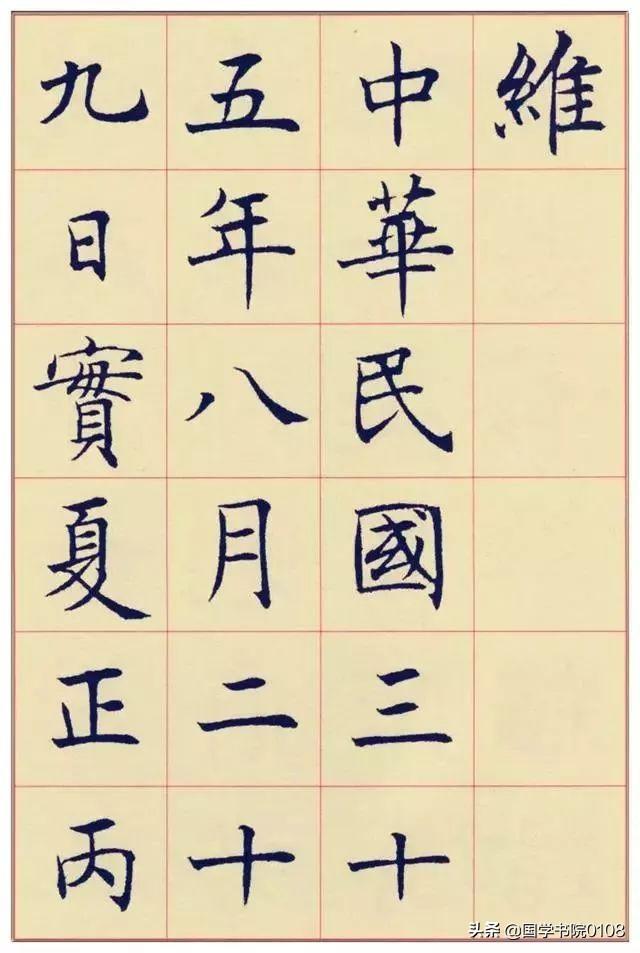 維
中華民國三十
五年八月二十
九日實夏正丙
头条 @国学书院0108